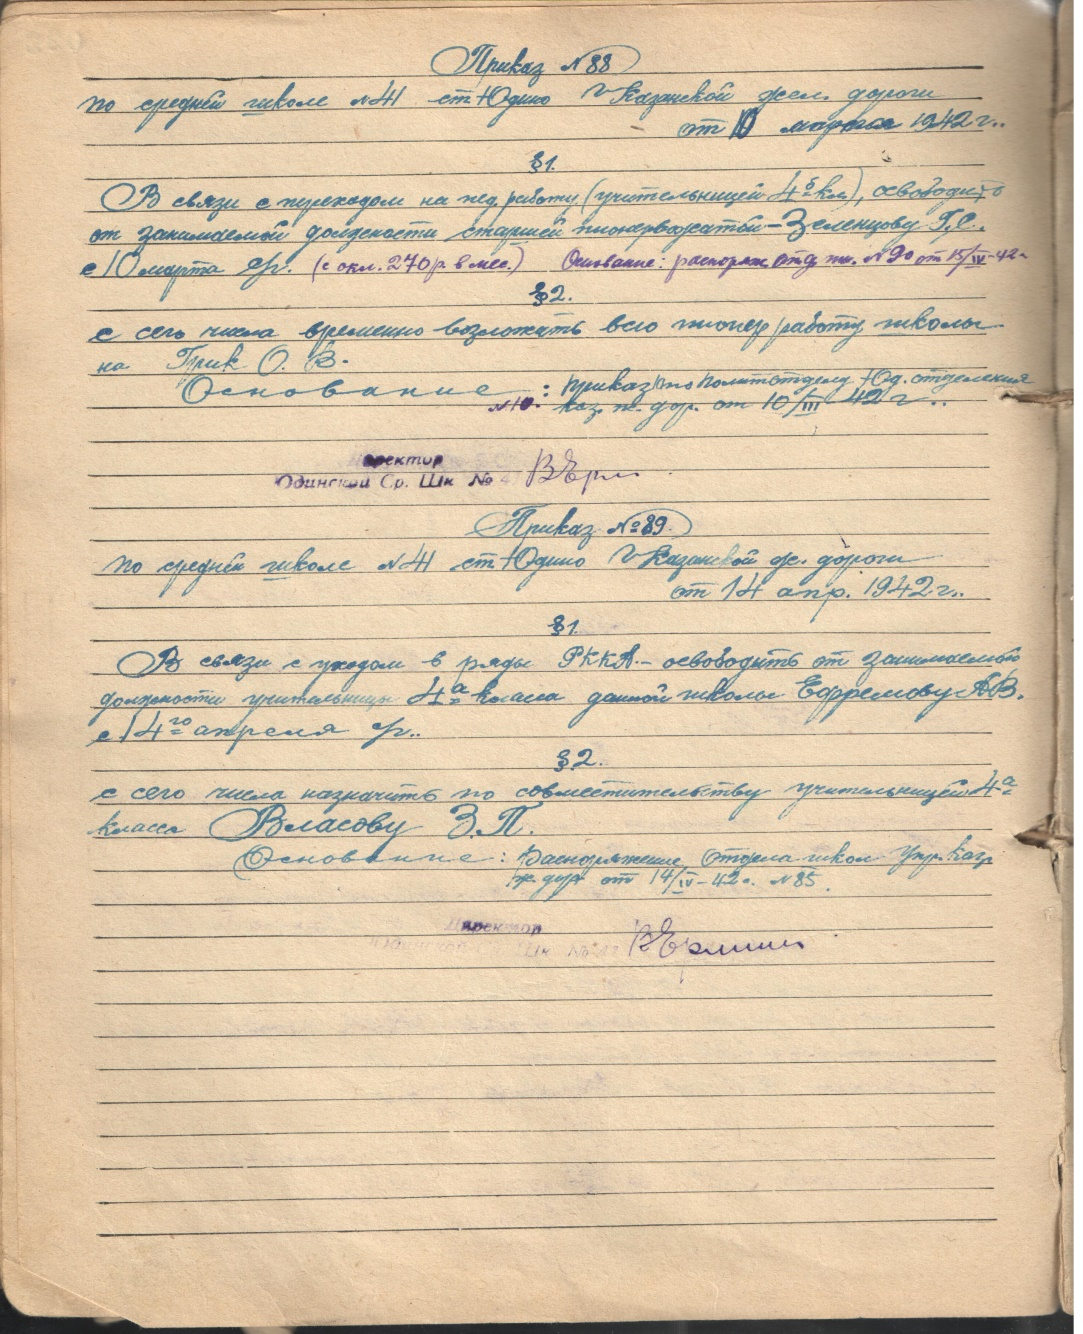 Приказ №88
по средней школе №41 ст. Юдино Казанской жел. дороги
от 10 марта 1942 г..
§1.
В связи с переходом на пед. работу (учительницей 4б кл), освободить
от занимаемой должности старшей пионервожатой - Зеленцову Г.С.
с 10 марта с/г. (с окл. 270 р. в мес.) Основание: распоряж. отд. шк. №90 от 15/III-42 г.
§2.
с сего числа временно возложить всю пионер работу школы
на Грик О. В.
Основание: приказ по политотделу Юд. отделения
№10. каз. ж. дор. от 10/III 42 г..
Директор
Юдинской Ср. Шк № 41
Приказ №89.
по средней школе №41 ст. Юдино Казанской ж. дороги
от 14 апр. 1942 г..
§1.
В связи с уходом в ряды РККА. - освободить от занимаемой
должности учительницы 4а класса данной школы Ефремову А.В.
с 14го апреля с/г..
§2.
с сего числа назначить по совместительству учительницей 4а
класса Власову З.П.
Основание: Распоряжение Отдела школ Упр. Каз
ж. дор от 14/IV-42 г. №85.
Директор
Юдинской Шк № 41